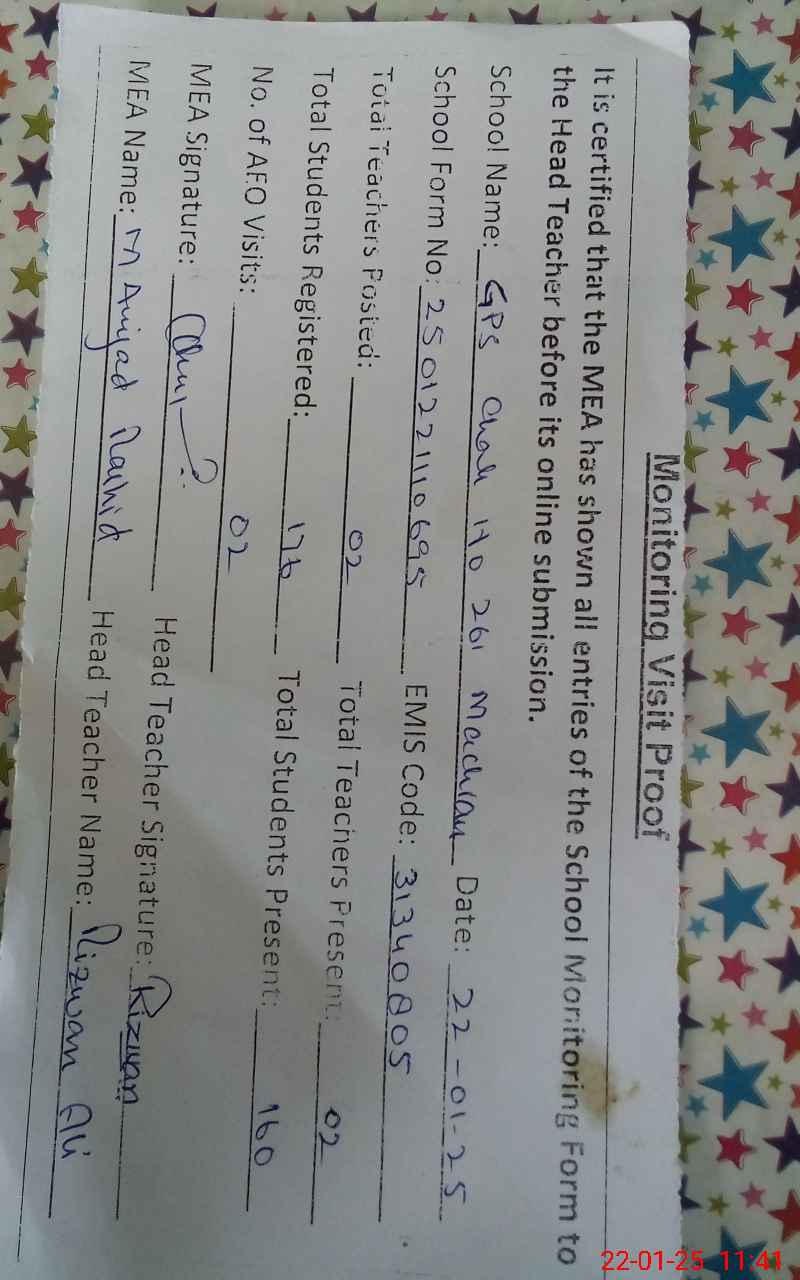 Monitoring Visit Proof
It is certified that the MEA has shown all entries of the School Monitoring Form to
the Head Teacher before its online submission.
School Name: GPS Chak No 261 Machian Date: 22-01-25
School Form No: 2501221110695 EMIS Code: 31340805
Total Teachers Posted: 02 Total Teachers Present: 02
Total Students Registered: 176 Total Students Present: 160
No. of AEO Visits: 02
MEA Signature: Head Teacher Signature: Rizwan
MEA Name: M Amjad Rashid Head Teacher Name: Rizwan Ali
22-01-25 11:41